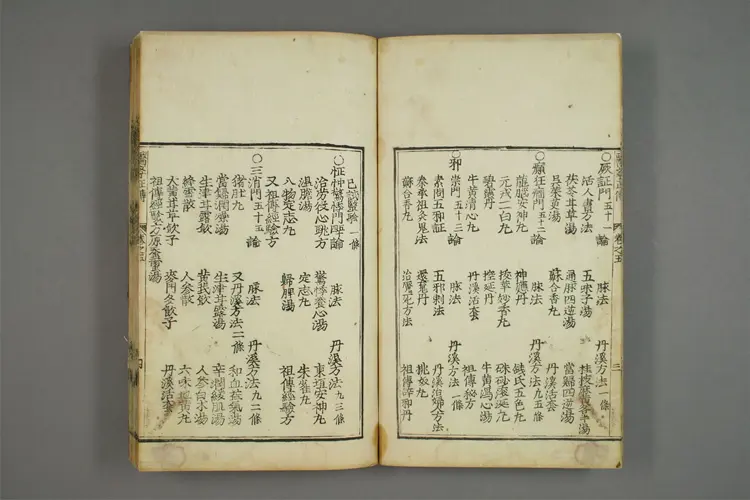 ○厥証門五十一 論 脉法 丹溪方法 一條
活人書方法 五味子湯
茯苓甘草湯 通脉四逆湯 當歸四逆湯
吳茱萸湯 蘇合香丸 丹溪活套
○癲狂癎門五十二 論 脉法 丹溪方法 九五條
龍腦安神丸 神應丹 錢氏五色丸
元戎二白丸 妙香丸 硃砂滾涎丸
碧霞丹 控涎丹 牛黃瀉心湯
牛黃清心丸 丹溪活套 祖傳秘方
○邪祟門五十三 論 脉法 丹溪方法 一條
素問五邪証 五邪刺法 丹溪治婦人方法
秦承祖灸鬼法 還魂丹 桃奴丸
蘇合香丸 治魘死方法 祖傳辟邪丹
卷之五
三
已試醫驗 一條
○怔忡驚悸門五十四 論 脉法 丹溪方法 九三條
治勞役心跳方 驚悸養心湯 東垣安神丸
溫膽湯 定志丸 朱雀丸
八物定志丸 歸脾湯 祖傳經驗方
又祖傳經驗方
○三消門五十五 論 脉法 丹溪方法 九二條
猪肚丸 又丹溪方法 二條 和血益氣湯
當歸潤燥湯 生津甘露湯 辛潤緩肌湯
生津甘露飲 黃芪飲 人參白水湯
人參散 六味地黃丸
大黃甘草飲子 麥門冬飲子 丹溪活套
祖傳經驗方原蠶繭湯
醫學正傳
卷之五
四